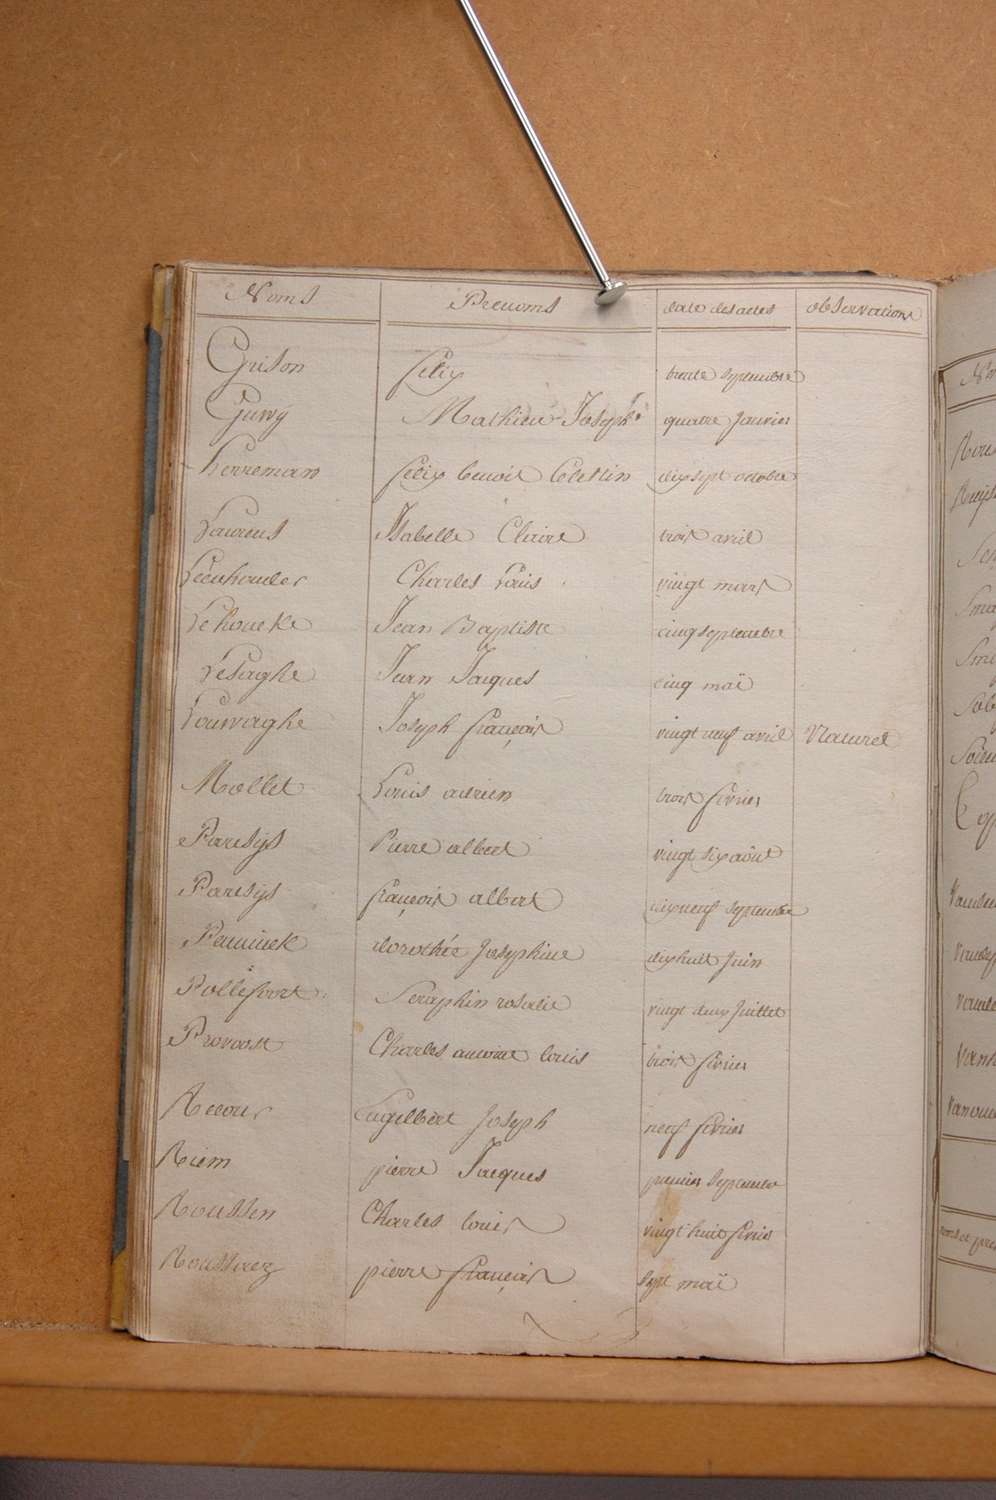 Noms Prenoms date des actes observations
Grison felix trente septembre
Guwy Mathieu Joseph quatre Janvier
herreman felix benoit Celestin dix sept octobre
Laurens Isabelle Claire trois avril
Leenhouder Charles Louis vingt mars
Lehoucke Jean Baptiste cinq septembre
LeSaghe Jean Jacques cinq maï
Louwaghe Joseph françois vingt neuf avril Naturel
Mollet Louis adrien trois fevrier
Paresys Pierre albert vingt six août
Paresys françois albert dix neuf septembre
Penninck dorothée Josephine dix huit Juin
Pollefoort Seraphin rosalie vingt deux Juillet
Provoost Charles antoine louis trois fevrier
Recour Engelbert Joseph neuf fevrier
Riem pierre Jacques premier Septembre
Roussen Charles louis vingt huit fevrier
Roussez pierre françois sept maï